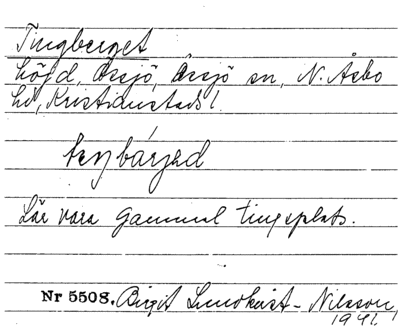 Tingberget
höjd, Össjö, Össjö sn, N. Åsbo
hd, Kristianstads l.
teŋbárjəd
Lär vara gammal tingsplats.
Nr 5508. Birgit Lundkvist-Nilsson,
1941.